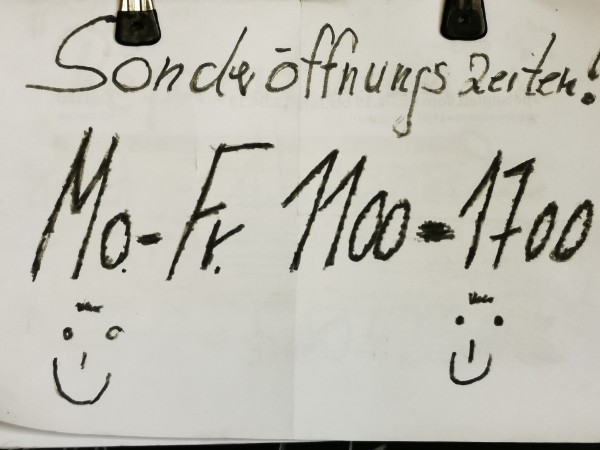 Sonderöffnungszeiten!
Mo.-Fr. 1100-1700